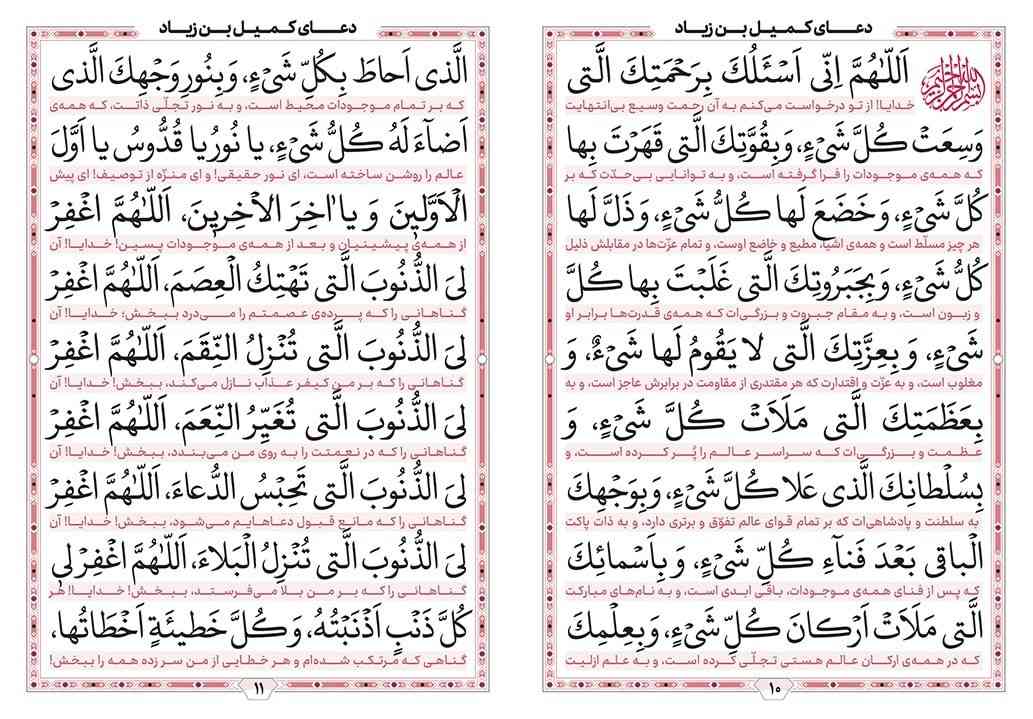 دعـــای کـمـیـل بـن زیـاد
بِسْمِ اللهِ الرَّحْمٰنِ الرَّحِيمِ
اَللّٰهُمَّ اِنّى اَسْئَلُكَ بِرَحْمَتِكَ الَّتى
خدایا! از تو درخواست می‌کنم به آن رحمت وسیع بی‌انتهایت
وَسِعَتْ كُلَّ شَىْءٍ، وَبِقُوَّتِكَ الَّتى قَهَرْتَ بِها
که همه‌ی موجودات را فرا گرفته است، و به توانایی بی‌حدّت که بر
كُلَّ شَىْءٍ، وَ خَضَعَ لَها كُلُّ شَىْءٍ، وَ ذَلَّ لَها
هر چیز مسلّط است و همه‌ی اشیا، مطیع و خاضع اوست، و تمام عزّت‌ها در مقابلش ذلیل
كُلُّ شَىْءٍ، وَ بِجَبَرُوتِكَ الَّتى غَلَبْتَ بِها كُلَّ
و زبون است، و به مقام جبروت و بزرگی‌ات که همه‌ی قدرت‌ها برابر او
شَىْءٍ، وَ بِعِزَّتِكَ الَّتى لا يَقُومُ لَها شَىْءٌ، وَ
مغلوب است، و به عزّت و اقتدارت که هر مقتدری از مقاومت در برابرش عاجز است، و به
بِعَظَمَتِكَ الَّتى مَلَاَتْ كُلَّ شَىْءٍ، وَ
عظمت و بزرگی‌ات که سراسر عالم را پُر کرده است، و
بِسُلْطانِكَ الَّذى عَلا كُلَّ شَىْءٍ، وَ بِوَجْهِكَ
به سلطنت و پادشاهی‌ات که بر تمام قوای عالم تفوّق و برتری دارد، و به ذات پاکت
الْباقى بَعْدَ فَناۤءِ كُلِّ شَىْءٍ، وَ بِاَسْمائِكَ
که پس از فنای همه‌ی موجودات، باقی ابدی است، و به نام‌های مبارکت
الَّتى مَلَاَتْ اَرْكانَ كُلِّ شَىْءٍ، وَبِعِلْمِكَ
که در همه‌ی ارکان عالم هستی تجلّی کرده است، و به علم ازلیت
۱۰
دعـــای کـمـیـل بـن زیـاد
الَّذى اَحاطَ بِكُلِّ شَىْءٍ، وَبِنُورِ وَجْهِكَ الَّذى
که بر تمام موجودات محیط است، و به نور تجلّی ذاتت، که همه‌ی
اَضاۤءَ لَهُ كُلُّ شَىْءٍ، يا نُورُ يا قُدُّوسُ يا اَوَّلَ
عالم را روشن ساخته است، ای نور حقیقی! و ای منزّه از توصیف! ای پیش
الْاَوَّلينَ وَ يا اٰخِرَ الْاٰخِرينَ، اَللّٰهُمَّ اغْفِرْ
از همه‌ی پیشینیان و بعد از همه‌ی موجودات پسین! خدایا! آن
لِىَ الذُّنُوبَ الَّتى تَهْتِكُ الْعِصَمَ، اَللّٰهُمَّ اغْفِرْ
گناهانی را که پرده‌ی عصمتم را می‌درد ببخش؛ خدایا! آن
لِىَ الذُّنُوبَ الَّتى تُنْزِلُ النِّقَمَ، اَللّٰهُمَّ اغْفِرْ
گناهانی را که بر من کیفر عذاب نازل می‌کند، ببخش! خدایا! آن
لِىَ الذُّنُوبَ الَّتى تُغَيِّرُ النِّعَمَ، اَللّٰهُمَّ اغْفِرْ
گناهانی را که در نعمتت را به روی من می‌بندد، ببخش! خدایا! آن
لِىَ الذُّنُوبَ الَّتى تَحْبِسُ الدُّعاءَ، اَللّٰهُمَّ اغْفِرْ
گناهانی را که مانع قبول دعاهایم می‌شود، ببخش! خدایا! آن
لِىَ الذُّنُوبَ الَّتى تُنْزِلُ الْبَلاءَ، اَللّٰهُمَّ اغْفِرْ لى
گناهانی را که بر من بلا می‌فرستد، ببخش! خدایا! هر
كُلَّ ذَنْبٍ اَذْنَبْتُهُ، وَ كُلَّ خَطيئَةٍ اَخْطَاْتُها،
گناهی که مرتکب شده‌ام و هر خطایی از من سر زده همه را ببخش!
۱۱